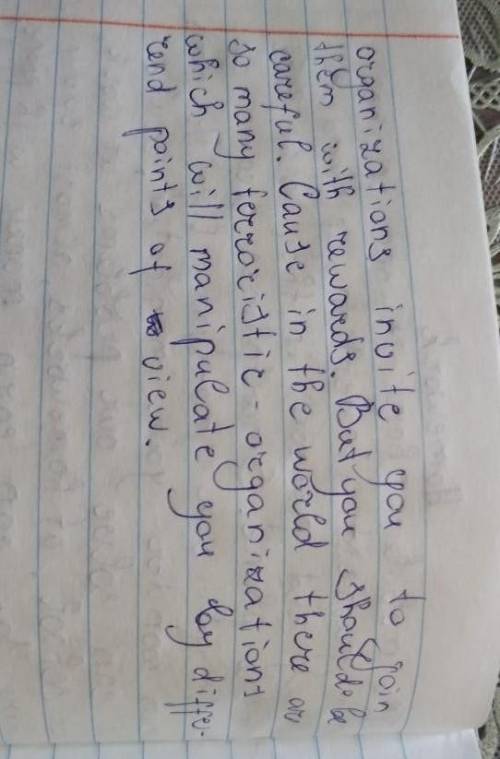 organizations invite you to join
them with rewards. But you should be
careful. Cause in the world there are
so many terroristic-organizations
which will manipulate you by diffe-
rend points of view.